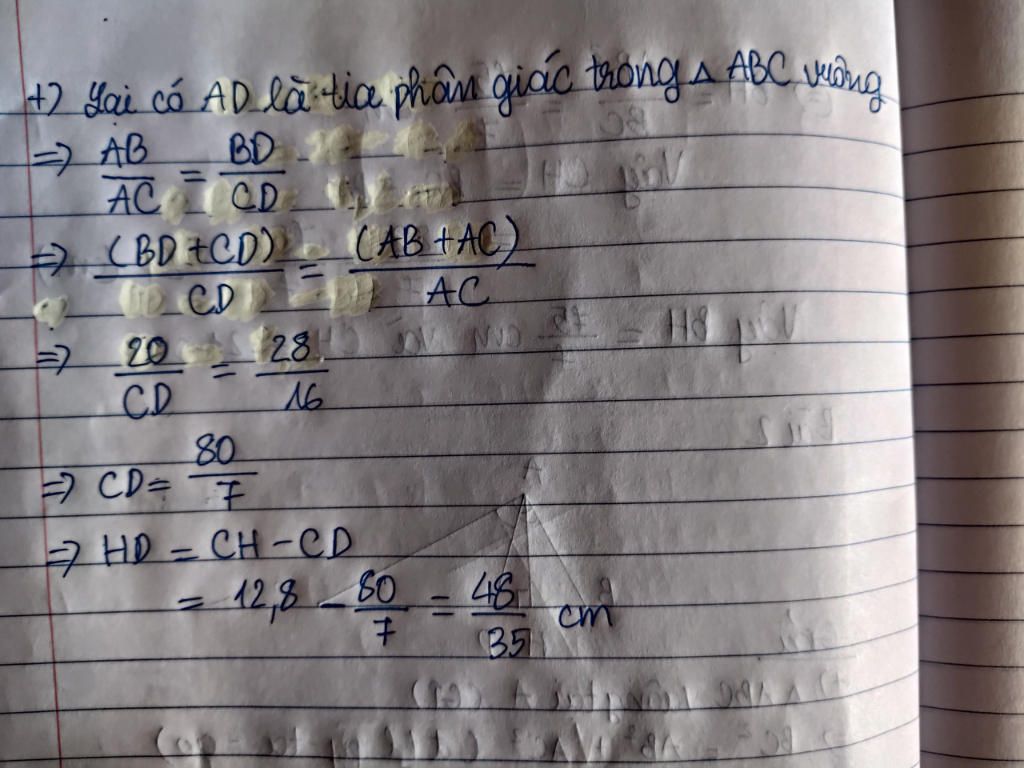 +) Lại có AD là tia phân giác trong △ ABC vuông
=> AB/AC = BD/CD
=> (BD+CD)/CD = (AB+AC)/AC
=> 20/CD = 28/16
=> CD = 80/7
=> HD = CH - CD
= 12,8 - 80/7 = 48/35 cm